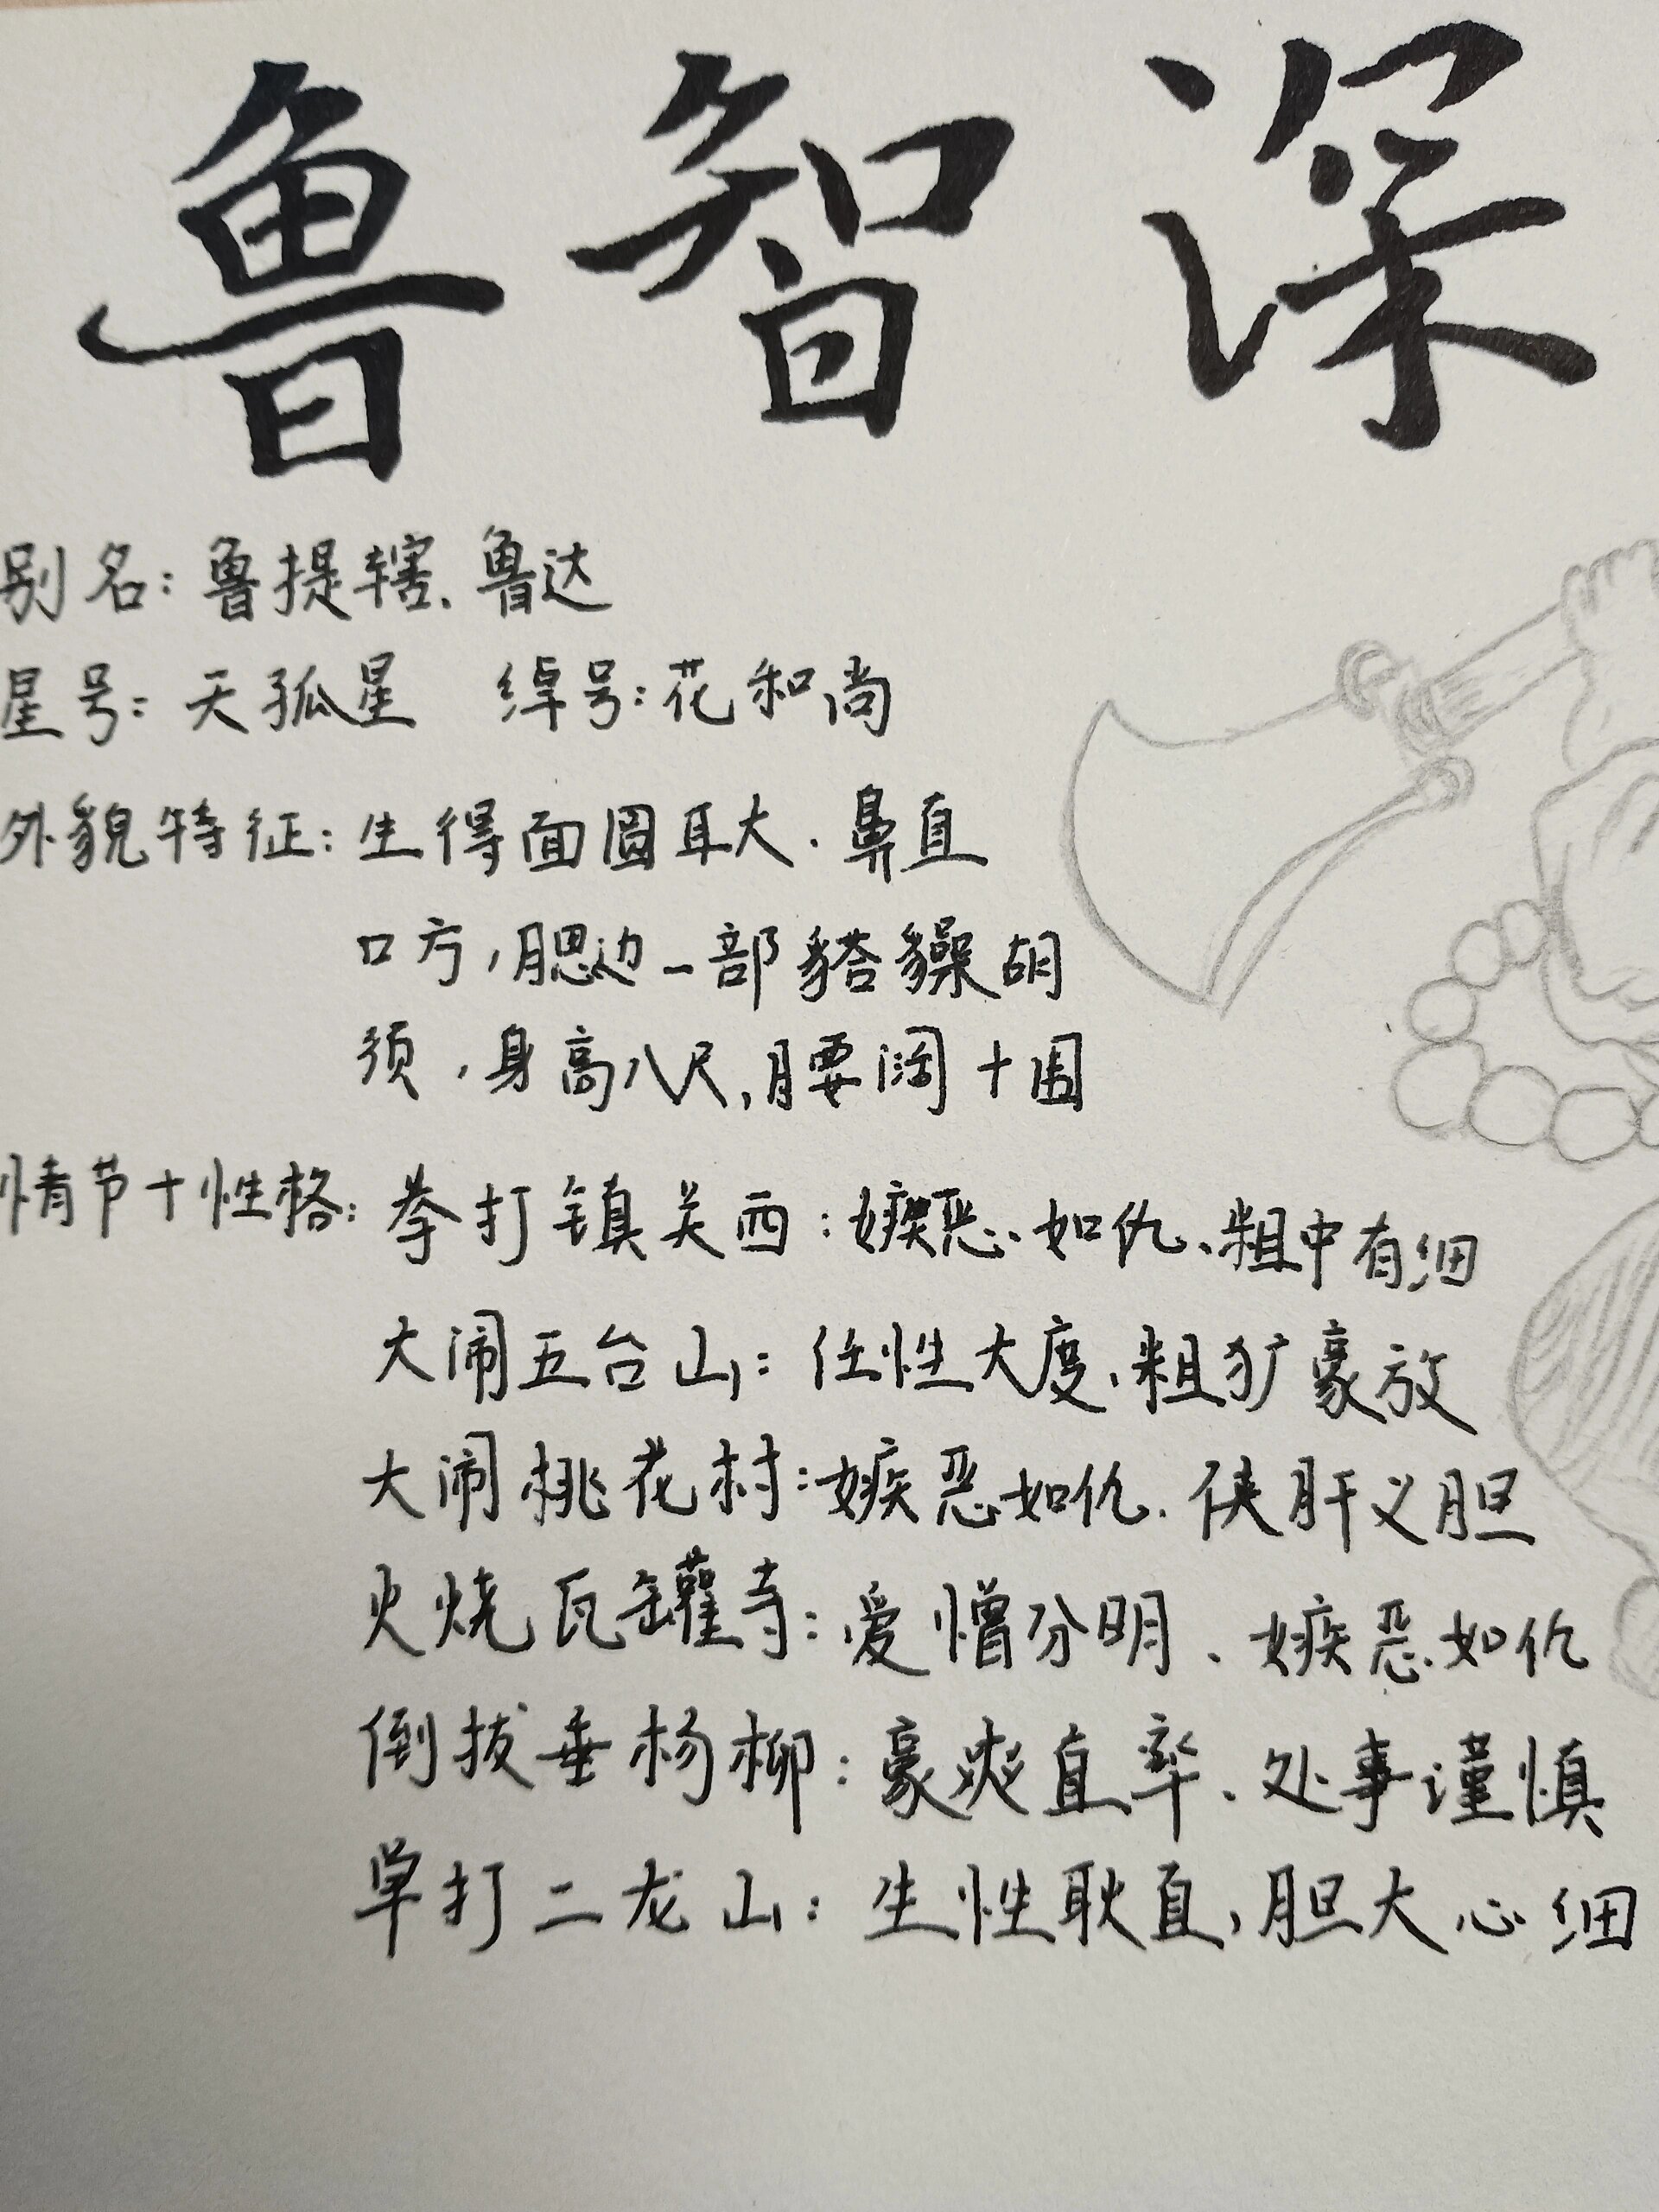 鲁智深
别名：鲁提辖、鲁达
星号：天孤星 绰号：花和尚
外貌特征：生得面圆耳大、鼻直
口方，腮边一部貉𧴤胡
须，身高八尺，腰阔十围
情节+性格：拳打镇关西：嫉恶如仇、粗中有细
大闹五台山：任性大度、粗犷豪放
大闹桃花村：嫉恶如仇、侠肝义胆
火烧瓦罐寺：爱憎分明、嫉恶如仇
倒拔垂杨柳：豪爽直率、处事谨慎
单打二龙山：生性耿直，胆大心细